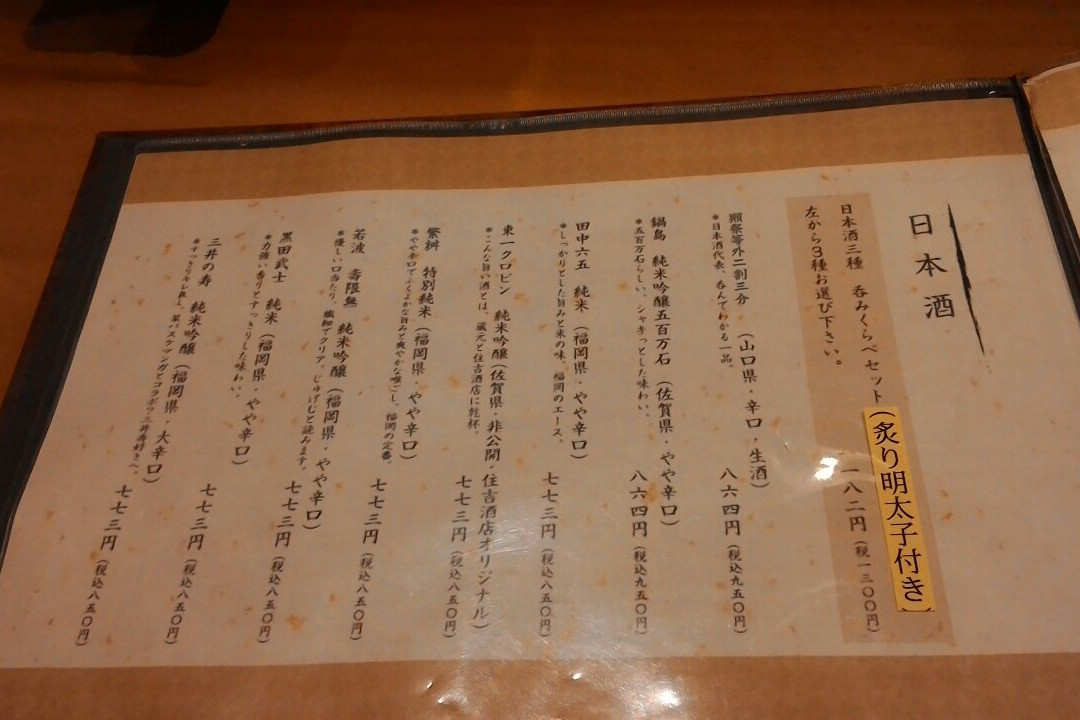 日本酒
日本酒三種 呑みくらべセット(炙り明太子付き)
一一八二円(税一三〇〇円)
左から3種お選び下さい。
獺祭等外二割三分 (山口県・辛口・生酒)
*日本酒代表、呑んでわかる一品。
八六四円(税込九五〇円)
鍋島 純米吟醸五百万石 (佐賀県・やや辛口)
*五百万石らしい、シャキっとした味わい。
八六四円(税込九五〇円)
田中六五 純米 (福岡県・やや辛口)
*しっかりとした旨みと米の味。福岡のエース。
七七三円(税込八五〇円)
東一クロビン 純米吟醸(佐賀県・非公開・住吉酒店オリジナル)
*こんな旨い酒とは、蔵元と住吉酒店に乾杯。
七七三円(税込八五〇円)
繁桝 特別純米 (福岡県・やや辛口)
*やや辛口でふくよかな旨みと爽やかな喉ごし。福岡の定番。
七七三円(税込八五〇円)
若波 壽限無 純米吟醸(福岡県・やや辛口)
*優しい口当たり、繊細でクリア。じゅげむと読みます。
七七三円(税込八五〇円)
黒田武士 純米 (福岡県・やや辛口)
*力強い香りとすっきりした味わい。
七七三円(税込八五〇円)
三井の寿 純米吟醸(福岡県・大辛口)
*すっきりキレ良し。某バスケマンガとコラボ?三井寿好きへ。
七七三円(税込八五〇円)